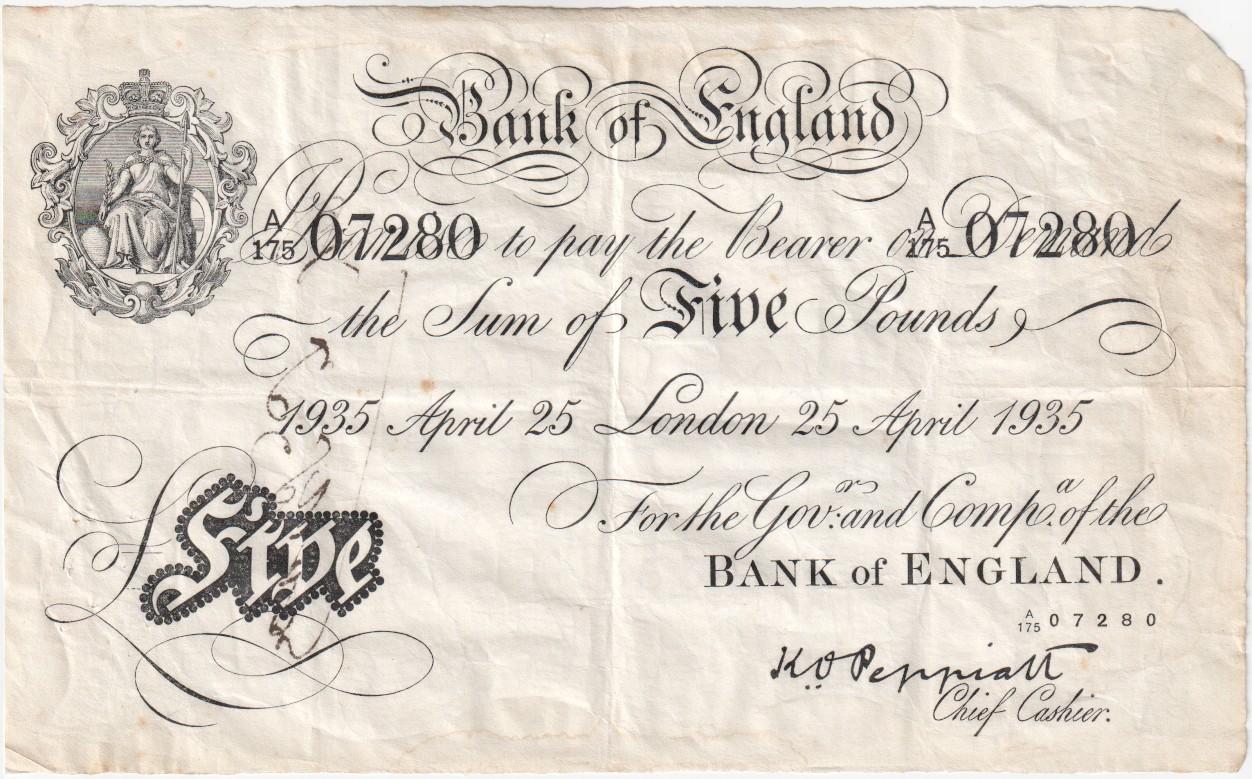 Bank of England
A/175 07280 to pay the Bearer on Demand A/175 07280
the Sum of Five Pounds,
1935 April 25 London 25 April 1935
For the Govr. and Compa. of the
BANK of ENGLAND.
£Five
A/175 07280
K O Peppiatt
Chief Cashier.